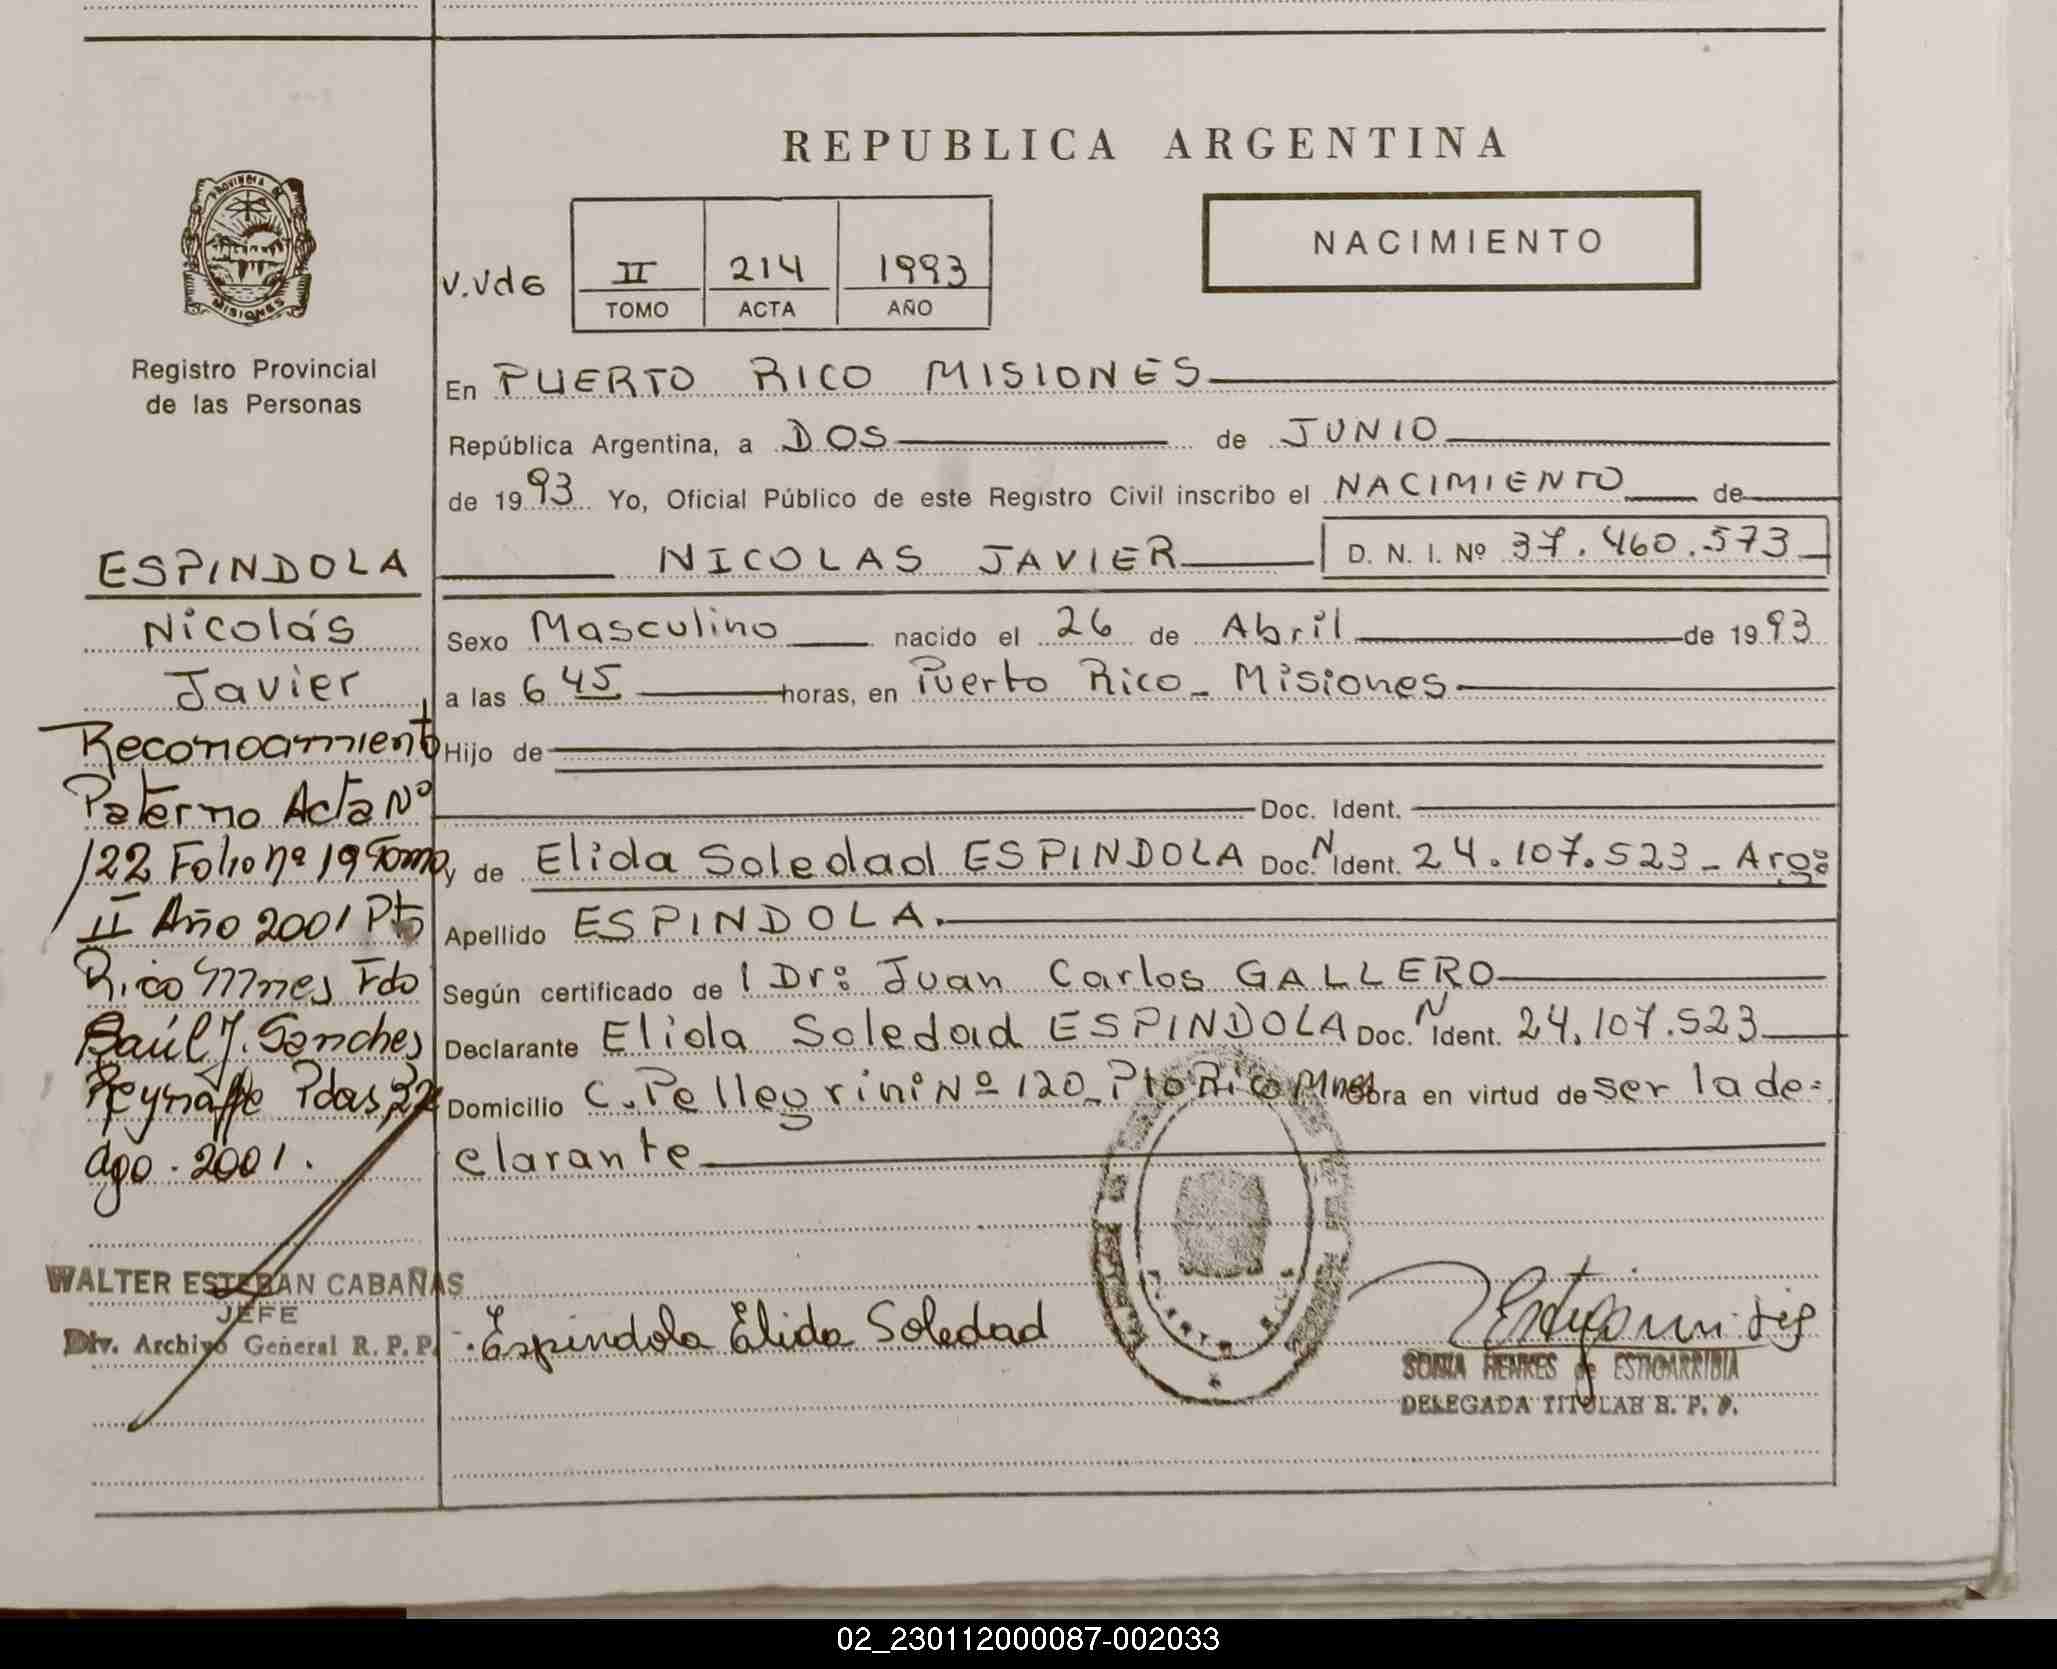 REPUBLICA ARGENTINA
PROVINCIA DE
MISIONES
NACIMIENTO
V.Vd6
II 214 1993
TOMO ACTA AÑO
Registro Provincial
de las Personas
ESPINDOLA
Nicolás
Javier
Reconocimiento
Paterno Acta Nº
122 Folio nº 19 Tomo
II Año 2001 Pto
Rico Mnes Fdo
Raúl J. Sanches
Pdas 22
Ago. 2001.
WALTER ESTEBAN CABAÑAS
JEFE
Div. Archivo General R. P. P.
En PUERTO RICO MISIONES
República Argentina, a DOS de JUNIO
de 1993 Yo, Oficial Público de este Registro Civil inscribo el NACIMIENTO de
NICOLAS JAVIER D. N. I. Nº 37.460.573
Sexo Masculino nacido el 26 de Abril de 1993
a las 6 45 horas, en Puerto Rico - Misiones
Hijo de
Doc. Ident.
y de Elida Soledad ESPINDOLA Doc. N Ident. 24.107.523 - Arg:
Apellido ESPINDOLA.
Según certificado de l Dr: Juan Carlos GALLERO
Declarante Elida Soledad ESPINDOLA Doc. N Ident. 24.107.523
Domicilio C. Pellegrini Nº 120 - Pto Rico Mnes Obra en virtud de ser la de=
clarante
Espindola Elida Soledad
SONIA HENKES de ESTIGARRIBIA
DELEGADA TITULAR R. P. P.
02_230112000087-002033